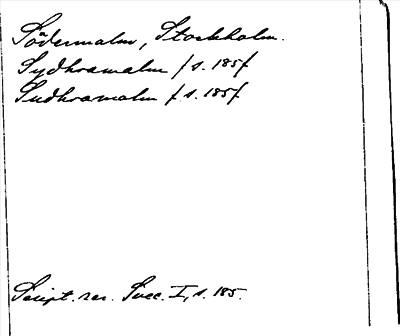 Södermalm, Stockholm.
Sydhramalm / s. 185/
Sudhramalm / s. 185/
Script. rer. Svec. I, s. 185.